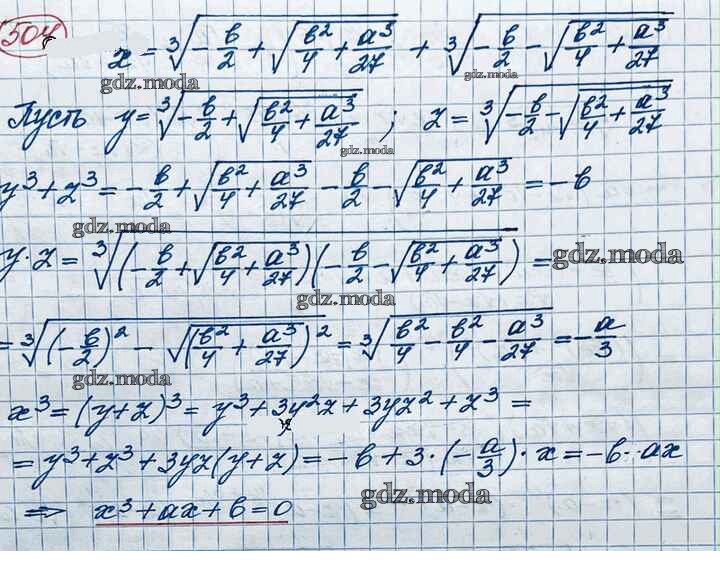 504
x = ∛(-b/2 + √(b²/4 + a³/27)) + ∛(-b/2 - √(b²/4 + a³/27))
gdz.moda gdz.moda
Пусть y = ∛(-b/2 + √(b²/4 + a³/27)) ; z = ∛(-b/2 - √(b²/4 + a³/27))
gdz.moda
y³ + z³ = -b/2 + √(b²/4 + a³/27) - b/2 - √(b²/4 + a³/27) = -b
gdz.moda
y·z = ∛((-b/2 + √(b²/4 + a³/27))(-b/2 - √(b²/4 + a³/27))) =
gdz.moda
gdz.moda
= ∛((-b/2)² - √(b²/4 + a³/27)²) = ∛(b²/4 - b²/4 - a³/27) = -a/3
gdz.moda
x³ = (y+z)³ = y³ + 3y²z + 3yz² + z³ =
= y³ + z³ + 3yz(y+z) = -b + 3·(-a/3)·x = -b - ax
gdz.moda
⇒ x³ + ax + b = 0